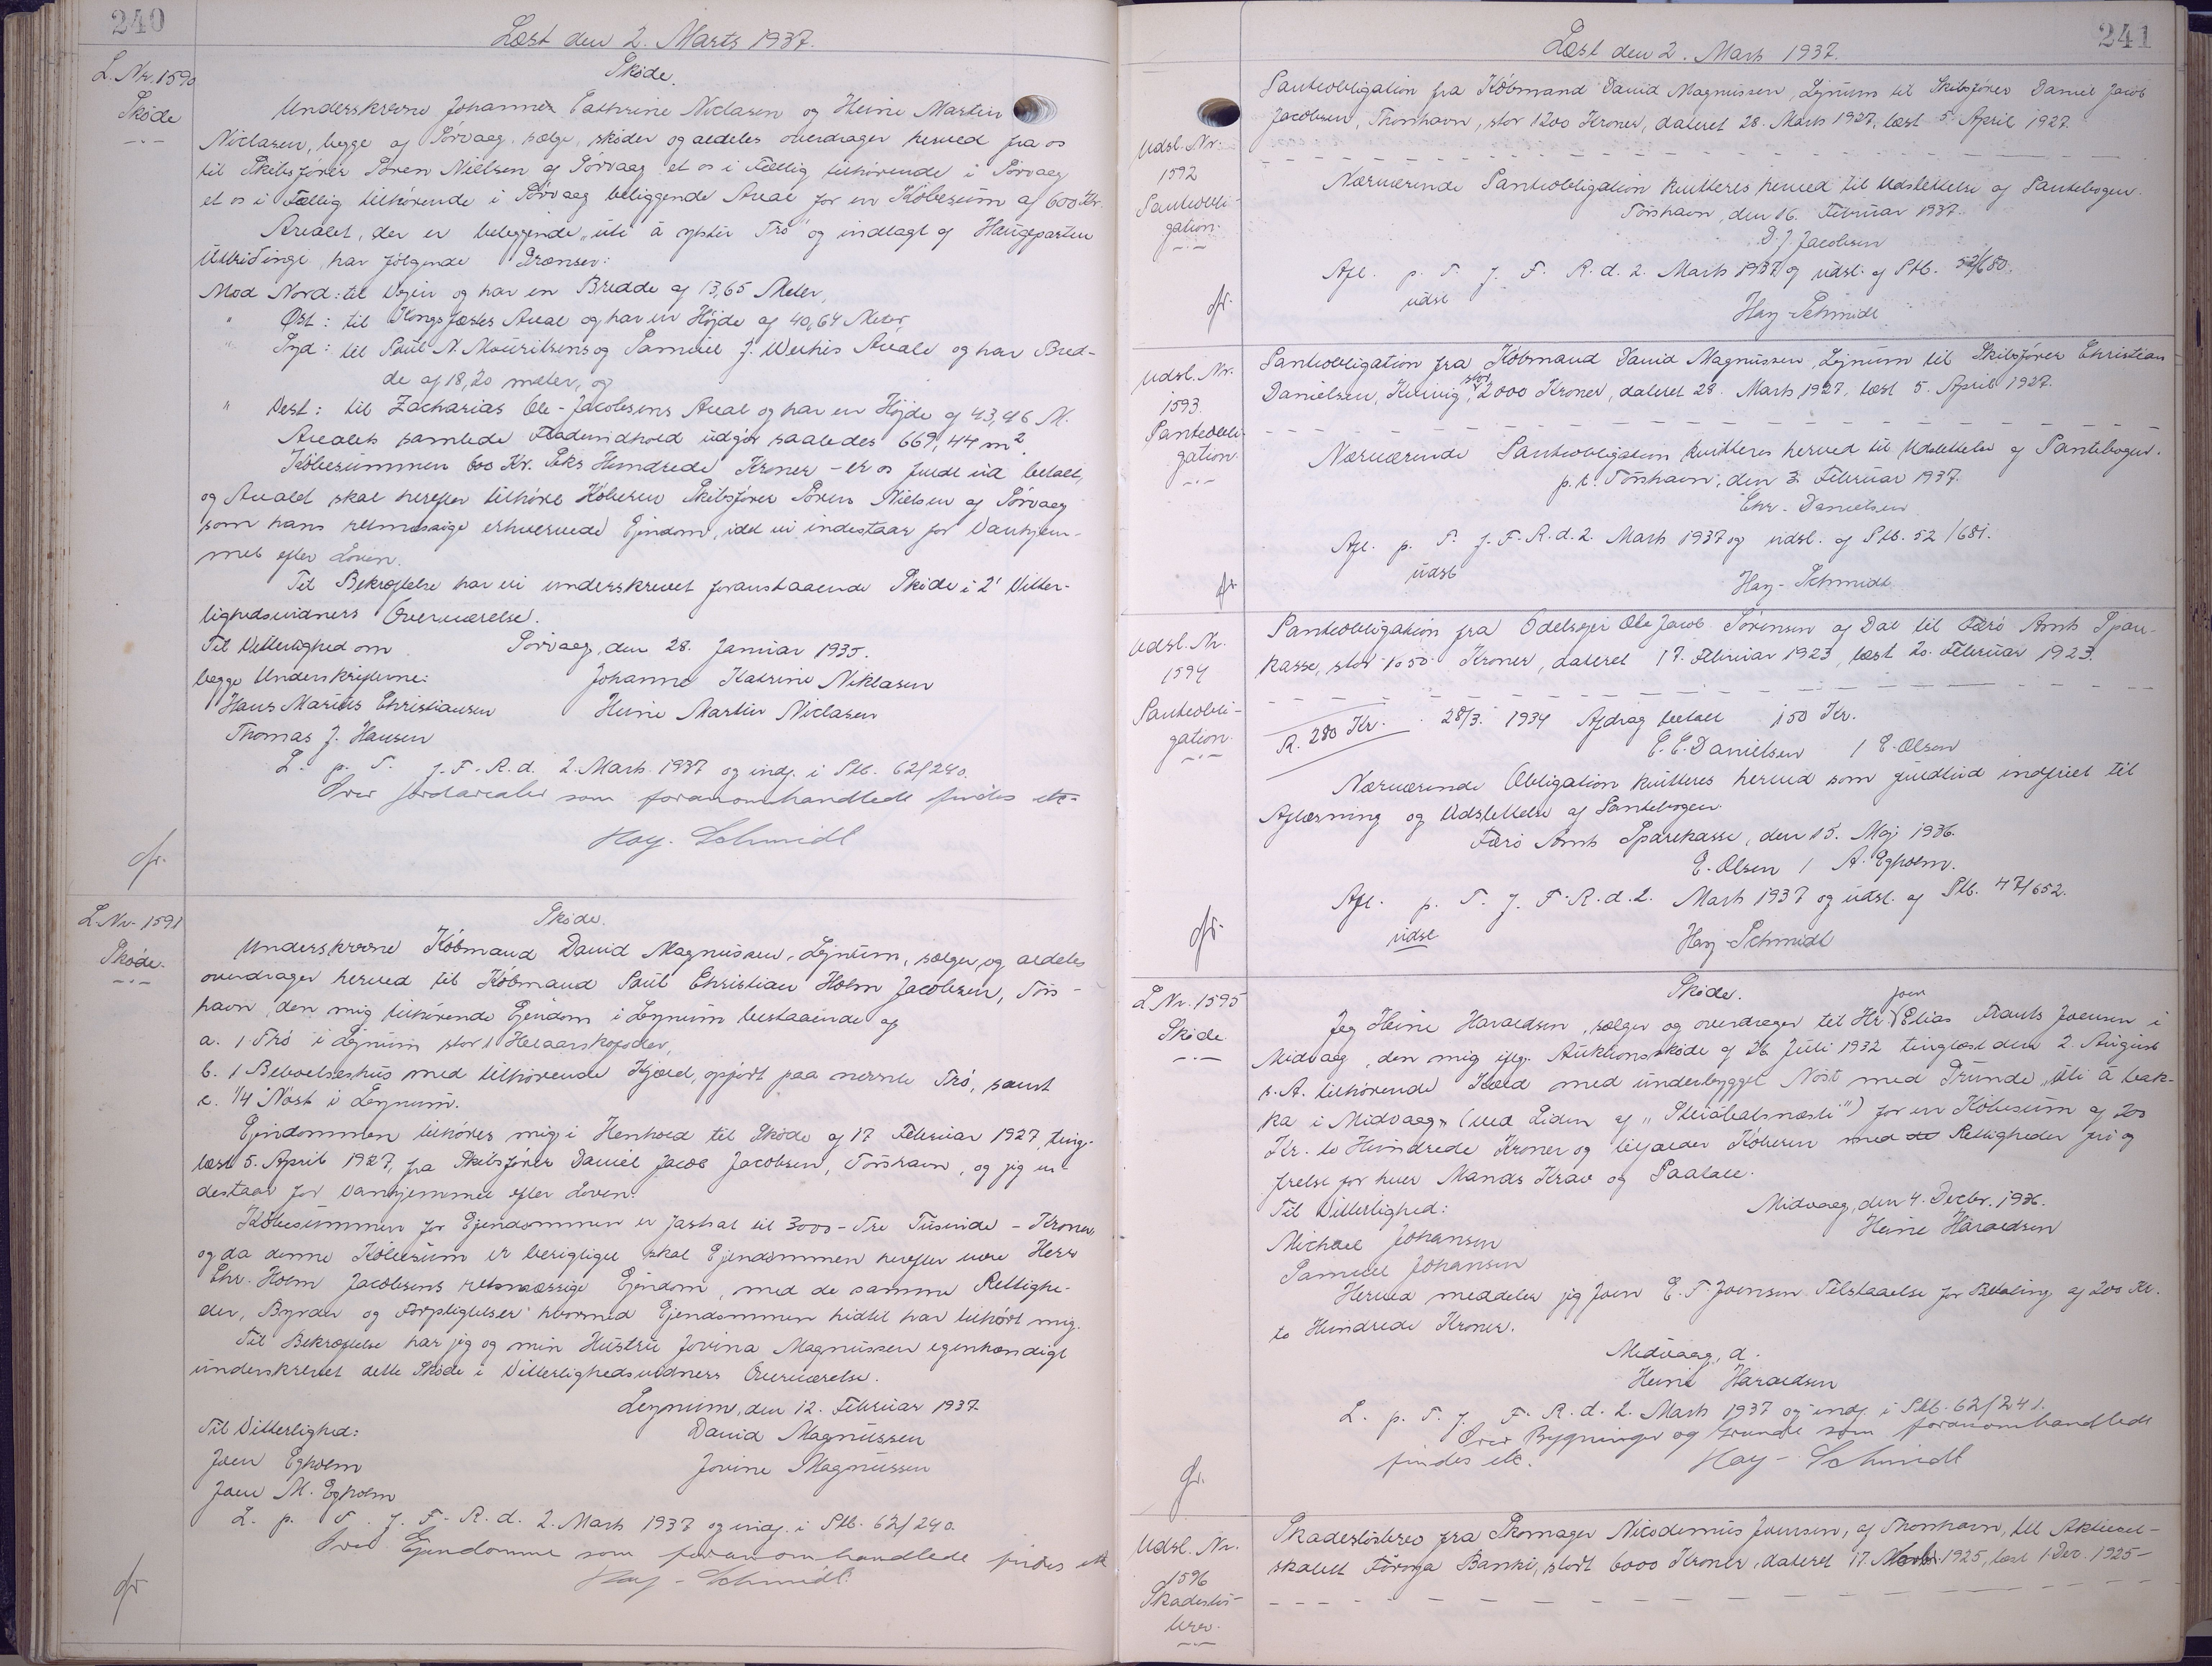 240
Læst den 2. Marts 1937.
L. Nr. 1590
Skøde
Skøde.
Underskrevne Johanne Cathrine Niclasen og Heine Martin
Niclasen, begge af Sórvaag, sælge, skóder og aldeles overdrager herved fra os
til Skibsfører Sóren Nielsen af Sórvaag et os i Fællig tilhørende i Sórvaag
et os i Fællig tilhórende i Sórvaag beliggende Areal for en Kóbesum af 600 Kr.
Arealet, der er beliggende "úti á ovstu Tró" og indlagt af Haugeparten
Utriðinge, har fólgende Grænser:
Mod Nord: til Vejen og har en Bredde af 13,65 Meter,
" Øst: til Kongsfæstes Areal og har en Højde af 40,64 Meter,
" Syd: til Poul N. Mouritsens og Samúel J. Weihes Areale og har Bred-
de af 18,20 meter, og
" Vest: til Zacharias Ole-Jacobsens Areal og har en Højde af 43,46 M.
Arealets samlede Fladeindhold udgór saaledes 669,44 m².
Kóbesummen 600 Kr. Seks Hundrede Kroner - er os fuldt ud betalt,
og Arealet skal herefter tilhóre Kóberen Skibsfører Sóren Nielsen af Sórvaag
som hans retmæssige erhvervede Ejendom, idet vi indestaar for Vanhjem-
mel efter Loven.
Til Bekræftelse har vi underskrevet foranstaaende Skóde i 2 Vitter-
lighedsvidners Overværelse.
Til Vitterlighed om Sórvaag, den 28. Januar 1935.
begge Underskrifterne: Johanne Katrine Niklasen
Hans Marius Christiansen Heine Martin Niclasen
Thomas J. Hansen
L. p. T. f. F. R. d. 2. Marts 1937 og indf. i Ptb. 62/240.
Over Jordarealer som foranomhandlede findes etc.
Hay-Schmidt
L. Nr. 1591
Skóde.
Skóde.
Underskrevne Kóbmand David Magnussen, Lejnum, sælger og aldeles
overdrager herved til Kóbmand Poul Christian Holm Jacobsen, Tórs-
havn, den mig tilhórende Ejendom i Lejnum bestaaende af
a. 1 Tró i Lejnum stor 1 Helaarskofoder,
b. 1 Beboelseshus med tilhórende Kjæld, opfórt paa nævnte Tró, samt
c. 1/4 Nóst i Lejnum.
Ejendommen tilhóres mig i Henhold til Skóde af 17 Februar 1927, ting-
læst 5. April 1927, fra Skibsfórer Daniel Jacob Jacobsen, Tórshavn, og jeg in
destaar for Vanhjemmel efter Loven.
Kóbesummen for Ejendommen er fastsat til 3000 - Tre Tusinde - Kroner,
og da denne Kóbesum er berigtiget skal Ejendommen herefter være Herr
Chr. Holm Jacobsens retmæssige Ejendom, med de samme Rettighe-
der, Byrder og Forpligtelser hvormed Ejendommen hidtil har tilhórt mig.
Til Bekræftelse har jeg og min Hustru Jovina Magnussen egenhændigt
underskrevet dette Skóde i Vitterlighedsvidners Overværelse.
Leynum, den 12. Februar 1937.
Til Vitterlighed: David Magnussen
Joen Egholm Jovine Magnussen
Joen M. Egholm
L. p. T. f. F. R. d. 2. Marts 1937 og indf. i Ptb. 62/240.
Over Ejendomme som foranomhandlede findes etc
Hay-Schmidt.
241
Læst den 2. Marts 1937.
Udsl. Nr.
1592
Panteobli-
gation.
Panteobligation fra Kóbmand David Magnussen, Lejnum til Skibsfórer Daniel Jacob
Jacobsen, Thorshavn, stor 1200 Kroner, dateret 28. Marts 1927, læst 5. April 1927.
Nærværende Panteobligation kvitteres herved til Udslettelse af Pantebogen.
Tórshavn, den 16. Februar 1937.
D. J. Jacobsen
Afl. p. T. f. F. R. d. 2. Marts 1937 og udsl. af Ptb. 52/680.
udsl
Hay-Schmidt
Udsl. Nr.
1593.
Panteobli-
gation.
Panteobligation fra Kóbmand David Magnussen, Lejnum til Skibsfórer Christian
Danielsen, Kvivig, stor 2000 Kroner, dateret 28. Marts 1927, læst 5. April 1927.
Nærværende Panteobligation kvitteres herved til Udslettelse af Pantebogen.
p.t. Tórshavn, den 3. Februar 1937.
Chr. Danielsen
Afl. p. T. f. F. R. d. 2. Marts 1937 og udsl. af Ptb. 52/681.
udsl
Hay-Schmidt
Udsl. Nr.
1594
Panteobli-
gation.
Panteobligation fra Odelsejer Ole Jacob Sórensen af Dal til Færó Amts Spare-
kasse, stor 1050 Kroner, dateret 17. Februar 1923, læst 20. Februar 1923.
R. 280 Kr. 28/3. 1934 Afdrag betalt 150 Kr.
C. C. Danielsen / E. Olsen
Nærværende Obligation kvitteres herved som fuldtud indfriet til
Aflæsning og Udslettelse af Pantebogen.
Færó Amts Sparekasse, den 15. Maj 1936.
E. Olsen / A. Egholm.
Afl. p. T. f. F. R. d. 2. Marts 1937 og udsl. af Ptb. 47/652.
udsl
Hay-Schmidt
L. Nr. 1595
Skóde
Skóde.
Jeg Heine Haraldsen, sælger og overdrager til Hr. Joen Elias Frants Joensen i
Midvaag, den mig iflg. Auktionsskóde af 26 Juli 1932 tinglæst den 2. August
s.A. tilhórende Kæld med underbygget Nóst med Grunde, "úti á bak-
ka i Midvaag" (ved Siden af ) for en Kóbesum af 200
Kr. to Hundrede Kroner og tilfalder Kóberen med Rettigheder fri og
frelse for hver Mands Krav og Paatale.
Til Vitterlighed: Midvaag, den 4. Decbr. 1936.
Michael Johansen Heine Haraldsen
Samuel Johansen
Herved meddeler jeg Joen E. F. Joensen Tilstaaelse for Betaling af 200 Kr.
to Hundrede Kroner.
Midvaag, d.
Heine Haraldsen
L. p. T. f. F. R. d. 2. Marts 1937 og indf. i Ptb. 62/241.
Over Bygninger og Grunde som foranomhandlede
findes etc. Hay-Schmidt
Udsl. Nr.
1596
Skadeslós-
brev.
Skadeslósbrev fra Skomager Nicodemus Joensen, af Thorshavn, til Aktiesel-
skabet Fóroya Banki, stort 6000 Kroner, dateret 17. Novbr. 1925, læst 1. Dec. 1925 -